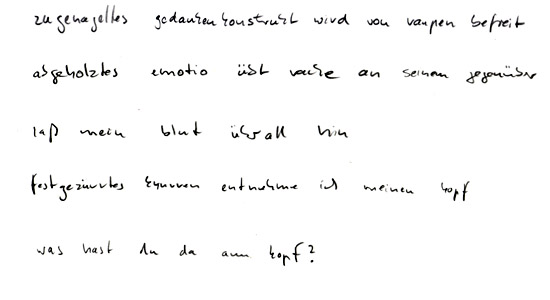 zugenageltes gedankenkonstrukt wird von raupen befreit
abgeholztes emotio übt rache an seinen gegenüber
laß mein blut überall hin
festgezurrtes knurren entnehme ich meinen kopf
was hast du da am kopf?